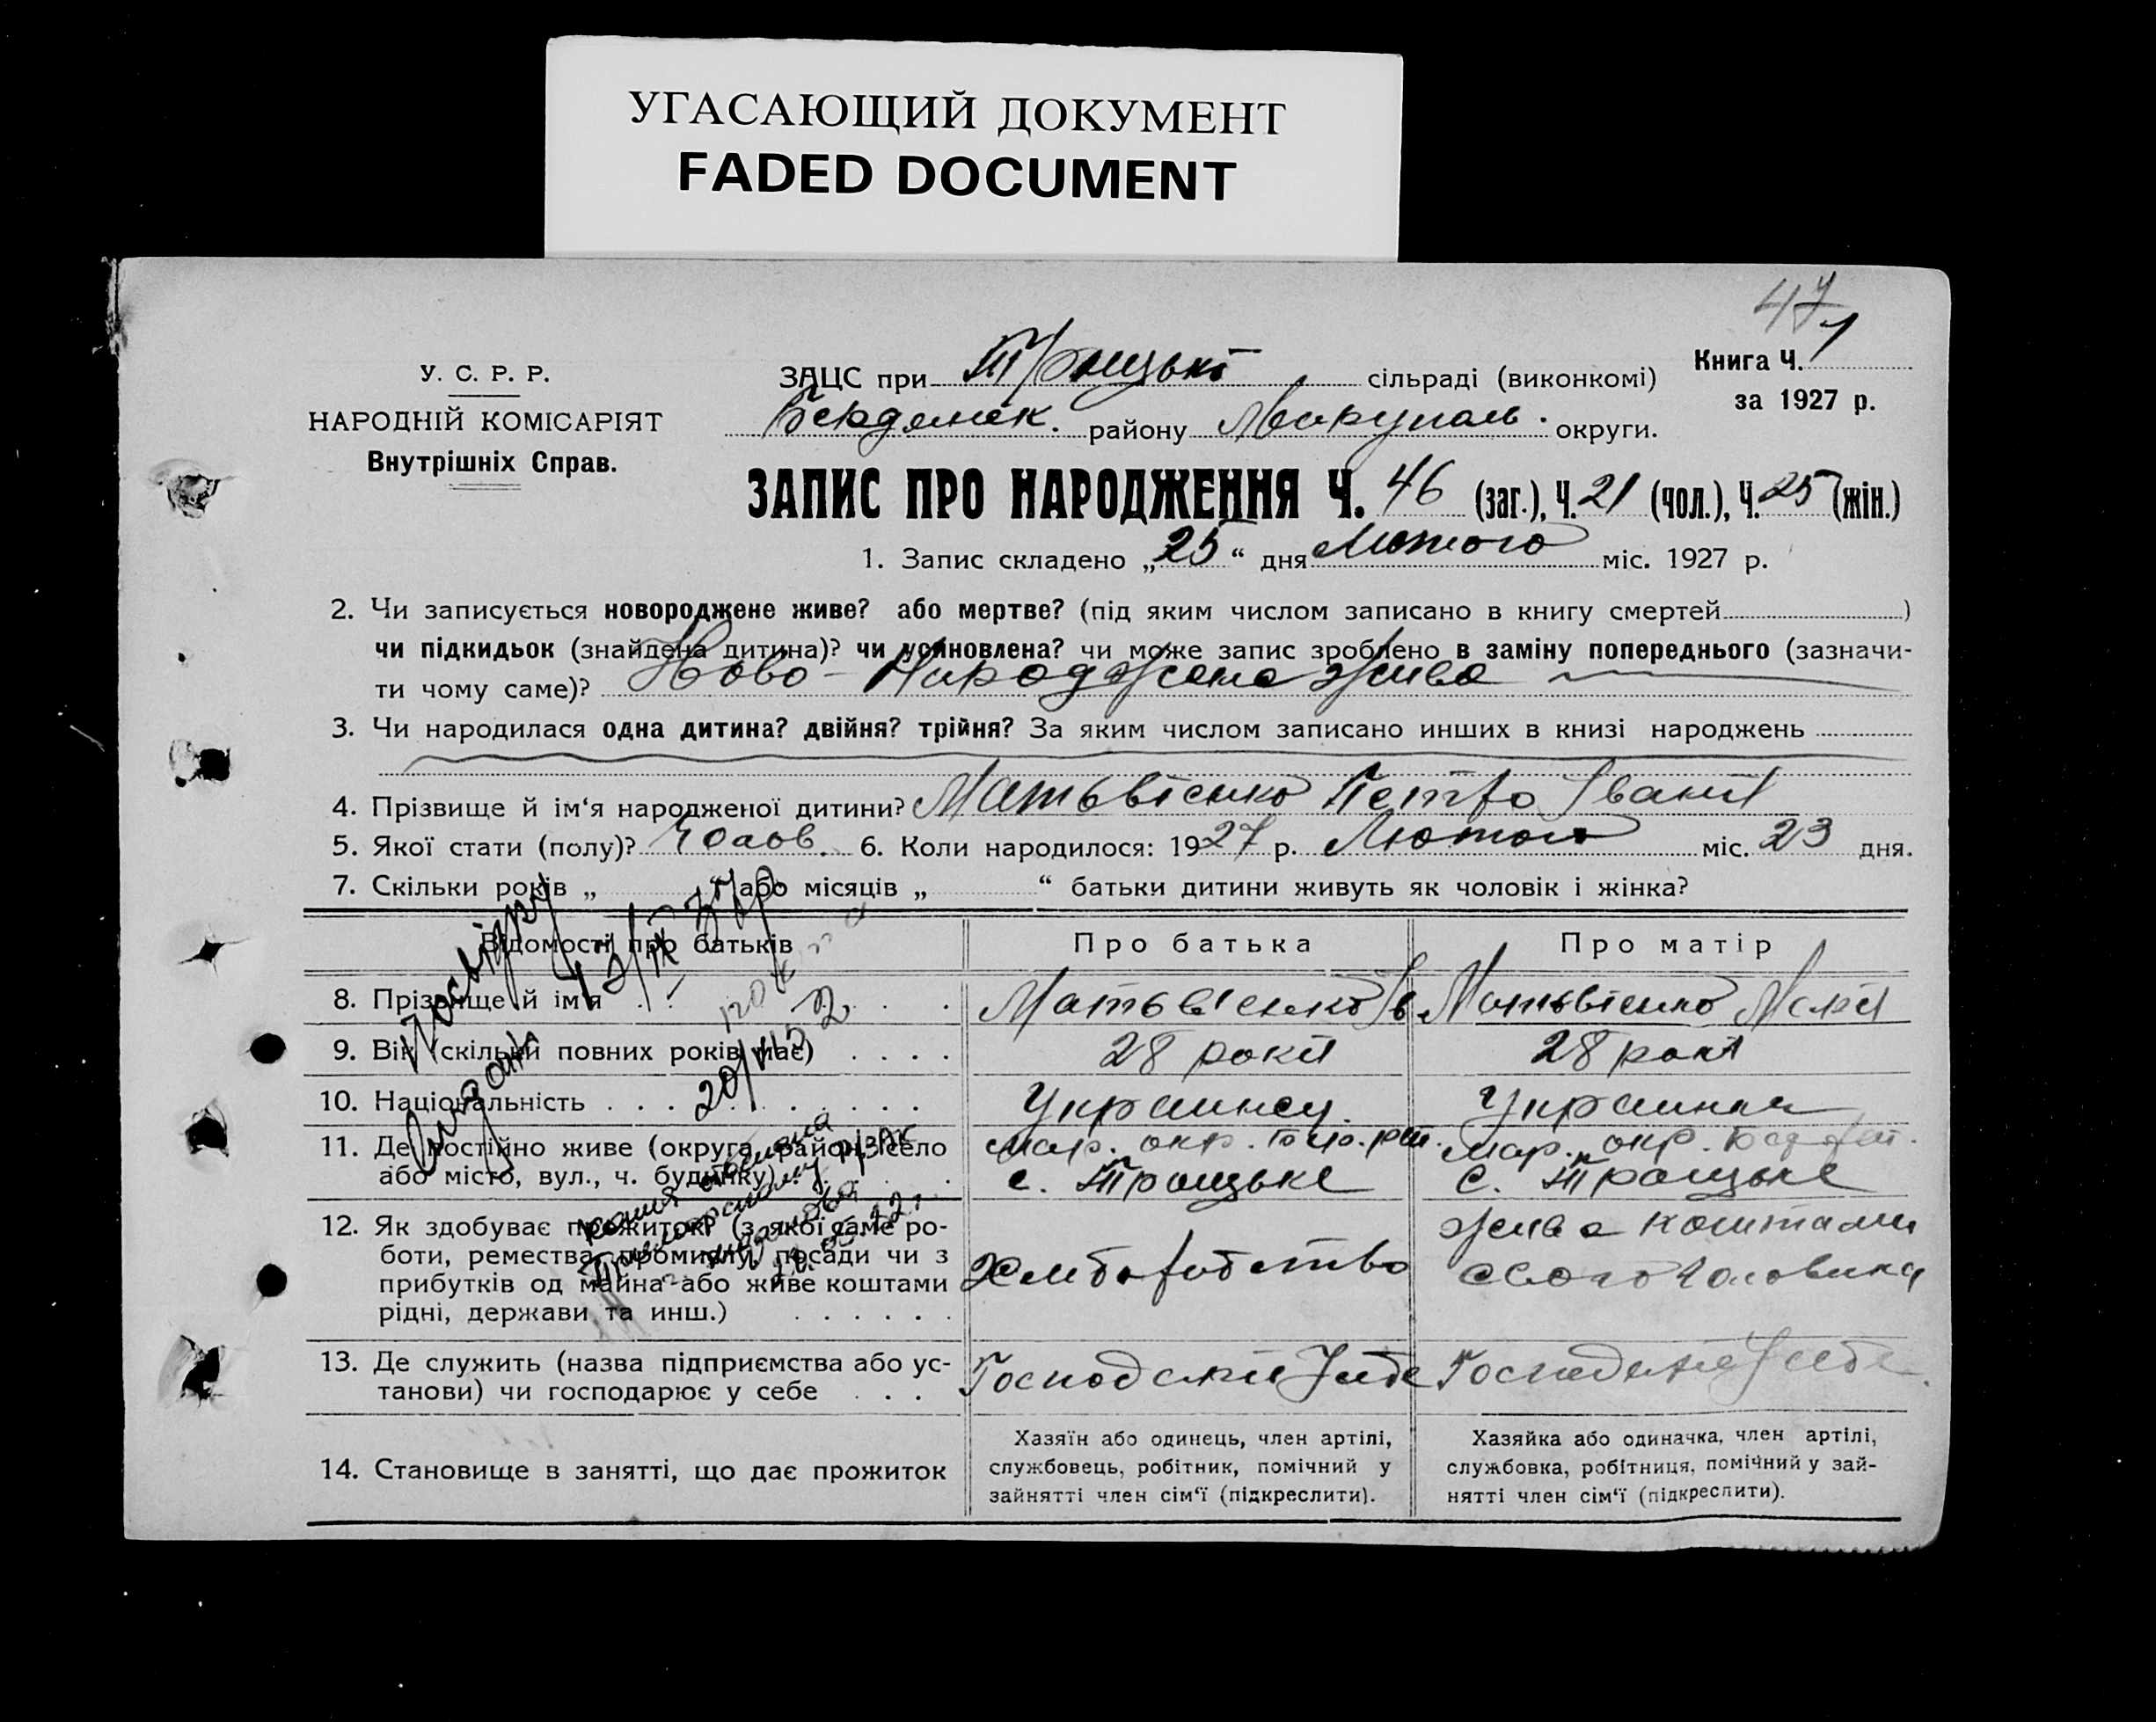 УГАСАЮЩИЙ ДОКУМЕНТ
FADED DOCUMENT
47
У. С. Р. Р.
НАРОДНІЙ КОМІСАРІЯТ
Внутрішніх Справ.
ЗАЦС при Троицькі сільраді (виконкомі)
Книга Ч. 1
за 1927 р.
Бердянск. району Мариуполь. округи.
ЗАПИС ПРО НАРОДЖЕННЯ Ч. 46 (заг.), Ч. 21 (чол.), Ч. 25 (жін.)
1. Запис складено „25“ дня Лютого міс. 1927 р.
2. Чи записується новороджене живе? або мертве? (під яким числом записано в книгу смертей )
чи підкидьок (знайдена дитина)? чи усиновлена? чи може запис зроблено в заміну попереднього (зазначи-
ти чому саме)? Ново-Народжена жива
3. Чи народилася одна дитина? двійня? трійня? За яким числом записано инших в книзі народжень
4. Прізвище й ім‘я народженої дитини? Матьвієнко Петро Іваніч
5. Якої стати (полу)? Чолов. 6. Коли народилося: 1927 р. Лютого міс. 23 дня.
7. Скільки років „ “ або місяців „ “ батьки дитини живуть як чоловік і жінка?
Відомості про батьків Про батька Про матір
8. Прізвище й ім‘я Матьвієнко Ів Матьвієнко
9. Вік (скільки повних років має) 28 років 28 рокі
10. Національність Украинец. Украинка
11. Де постійно живе (округа, район, село Мар. окр. Мар. окр.
або місто, вул., ч. будинку) с. Троицьке с. Троицьке
12. Як здобуває прожиток (з якої саме ро-
боти, ремества, промислу, посади чи з
прибутків од майна або живе коштами
рідні, держави та инш.)
Хлеборобство
жива коштами
свого чоловика
13. Де служить (назва підприємства або ус-
танови) чи господарює у себе
14. Становище в занятті, що дає прожиток
Хазяїн або одинець, член артілі,
службовець, робітник, помічний у
зайнятті член сім‘ї (підкреслити).
Хазяйка або одиначка, член артілі,
службовка, робітниця, помічний у зай-
нятті член сім‘ї (підкреслити).